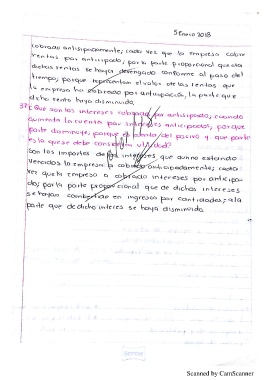 5 Enero 2018
cobrado antisipadamente; cada vez que la empresa cobre
rentas por anticipado; por la parte proporcional que de
dichas rentas se haya devengado conforme al paso del
tiempo; porque representan el valor de las rentas que
la empresa ha cobrado por anticipación, la parte que
dicha renta haya disminuido.
37. Que son los interéses cobrados por antisipado; cuando
aumenta la cuenta por intereses anticipados; porque
parte disminuye; porque es cuenta del pasivo y que parte
es la que se debe considerar utilidad?
Son los importes de los intereses que aun no estando
vencidos la empresa a cobrado anticipadamente; cada
vez que la empresa a cobrado intereses por anticipa-
do; por la parte proporcional que de dichos intereses
se hayan convertido en ingreso por cantidades; a la
parte que de dicho interes se haya disminuido.
Scanned by CamScanner